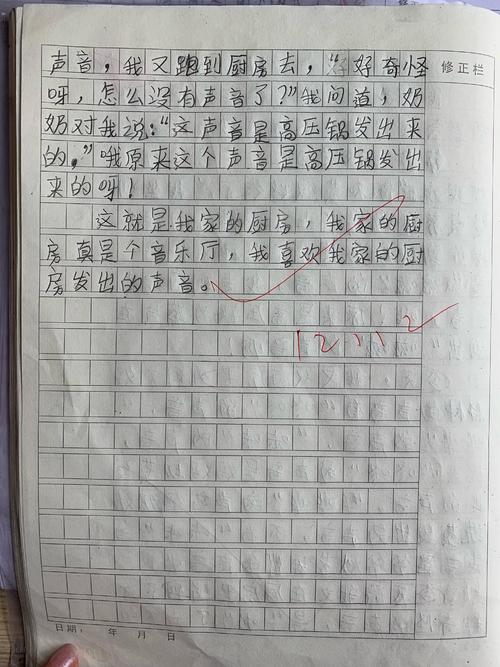 声音，我又跑到厨房去，“好奇怪
修正栏
呀，怎么没有声音了？”我问道，奶
奶对我说：“这声音是高压锅发出来
的，”哦原来这个声音是高压锅发出
来的呀！
这就是我家的厨房，我家的厨
房真是个音乐厅，我喜欢我家的厨
房发出的声音。
12,12
日期： 年 月 日